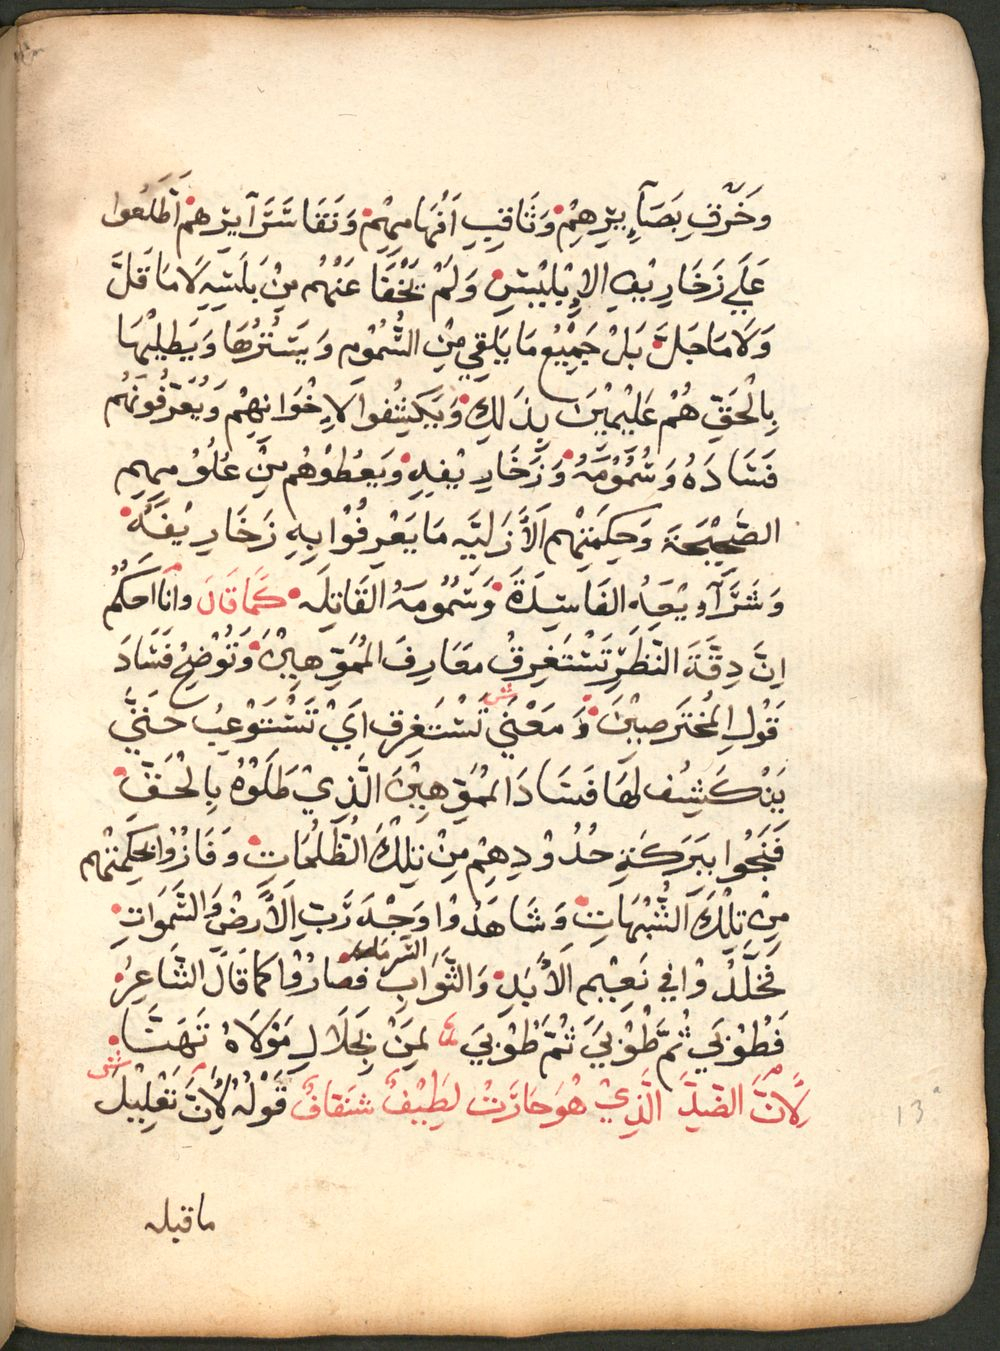 وَخَرْقِ بَصَآيِرِهِمْ وَثَاقِبِ اَفْهَامِهِمْ وَنَقَا سَرَآيِرِهِمْ اَطَّلَعُوا
عَلَي زَخَارِيْفِ الاِبْلِيْسِ وَلَمْ يَخْفَا عَنْهُم مِنْ بَلَسِهِ لَا مَا قَلَّ
وَلَا مَا جَلَّ بَلْ جَمِيْعِ مَا يُلقِي مِنْ السُّمُوْمِ وَيَسْتُرُهَا وَيَطلِيْهَا
بِالْحَقِّ هُمْ عَلِيْمِيْنَ بِذَلِكِ وَيَكشِفُوا لاِخْوَانِهِمْ وَيُعَرِّفُونَهُم
فَسَادَهُ وَسُمُوْمَهُ وَزَخَارِيْفِهِ وَيَعْطُوْهُم مِنْ عُلُوْمِهِم
الصَّحِيْحَة وَحِكمَتِهِم الاَزَليَّه مَا يَعْرِفُوْا بِهِ زَخَارِيْفَهُ
وَشَرَآيْعَهُ الفَاسِدَةَ وَسُمُومَهُ القَاتِلَه كَمَا قَالَ وانا احكُم
اِنَّ دِقَّةَ النَظَرِ تَسْتَغرِقْ مَعَارِفَ المُمَوِّهِيْنَ وَتُوْضِحْ فَسَادَ
قَوْلِ المُخْتَرصِيْنَ وَمَعْنَي تَسْتَغرِق اَيْ تَسْتَوْعِبُ حَتَّي
ش
يَنْكَشِف لَهَا فَسَادَ المُمَوِّهِيْنَ الَّذِيْ طَلَوْهُ بِالْحَقِّ
فَنَجُوا بِبَرَكَةِ حُدُوْدِهِمْ مِنْ تِلْكَ الظُلُمَاتِ وَفَازُوْا بِحِكمَتِهِم
مِنْ تِلْكَ الشُّبْهَاتِ وَشَاهَدُوا وَجْهَ رَبِّ الاَرْضْ وَالسَّمَوَاتِ
فَخُلِّدُوْا فِي نَعِيْمِ الاَبَدِ وَالثَّوَابِ السَرمَد فَصَارُوْا كَمَا قَالَ الشَاعِرْ
فَطُوْبَي ثُمَّ طُوْبَيَ ثُمَّ طُوْبَي لمَنْ بِجَلَالِ مَوْلَاهُ تَهَنَّا
لاَنَّ الضِدَّ الَّذِيْ هُوَ حَارَتْ لَطِيْفٌ شَفَافٌ قَوْلُهُ لاَنَّ تَعْلِيْلَ
ش
13
ما قبله